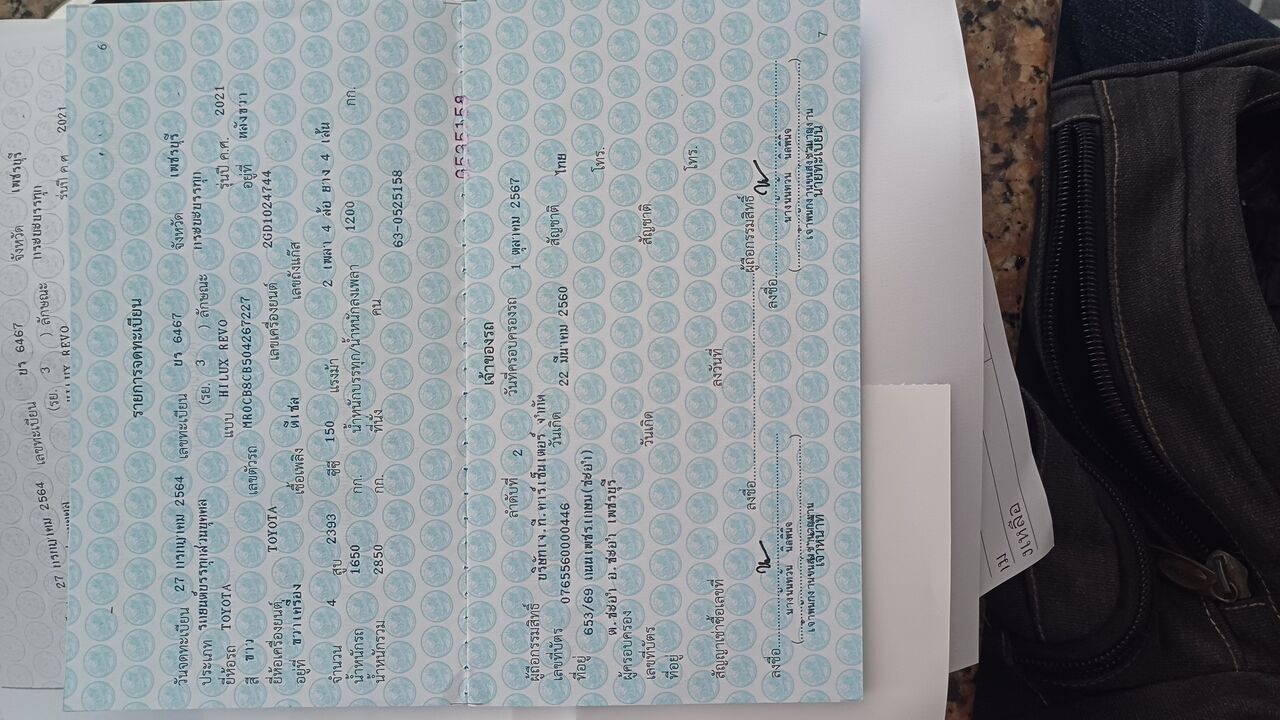 27 กรกฎาคม 2564 เลขทะเบียน บร 6467 จังหวัด เพชรบุรี
(รย. 3 ) ลักษณะ กระบะบรรทุก
HILUX REVO รุ่นปี ค.ศ. 2021
6
รายการจดทะเบียน
วันจดทะเบียน 27 กรกฎาคม 2564 เลขทะเบียน บร 6467 จังหวัด เพชรบุรี
ประเภท รถยนต์บรรทุกส่วนบุคคล (รย. 3 ) ลักษณะ กระบะบรรทุก
ยี่ห้อรถ TOYOTA แบบ HILUX REVO รุ่นปี ค.ศ. 2021
สี ขาว เลขตัวรถ MR0CB8CB504267227 อยู่ที่ หลังขวา
ยี่ห้อเครื่องยนต์ TOYOTA เลขเครื่องยนต์ 2GD1024744
อยู่ที่ ขวาเครื่อง เชื้อเพลิง ดีเซล เลขถังแก๊ส
จำนวน 4 สูบ 2393 ซีซี 150 แรงม้า 2 เพลา 4 ล้อ ยาง 4 เส้น
น้ำหนักรถ 1650 กก. น้ำหนักบรรทุก/น้ำหนักลงเพลา 1200 กก.
น้ำหนักรวม 2850 กก. ที่นั่ง คน
63-0525158
0525158
เจ้าของรถ
ลำดับที่ 2 วันที่ครอบครองรถ 1 ตุลาคม 2567
ผู้ถือกรรมสิทธิ์ บริษัทเจ.ที.คาร์เซ็นเตอร์ จำกัด
เลขที่บัตร 0765560000446 วันเกิด 22 มีนาคม 2560 สัญชาติ ไทย
ที่อยู่ 653/69 ถนนเพชรเกษม(ชะอำ) โทร.
ต.ชะอำ อ.ชะอำ เพชรบุรี
ผู้ครอบครอง
เลขที่บัตร วันเกิด สัญชาติ
ที่อยู่ โทร.
สัญญาเช่าซื้อเลขที่ ลงวันที่
ลงชื่อ ผู้ถือกรรมสิทธิ์
ลงชื่อ ลงชื่อ
เจ้าพนักงานขนส่งชำนาญงาน เจ้าพนักงานขนส่งชำนาญงาน
เจ้าหน้าที่ นายทะเบียน
7